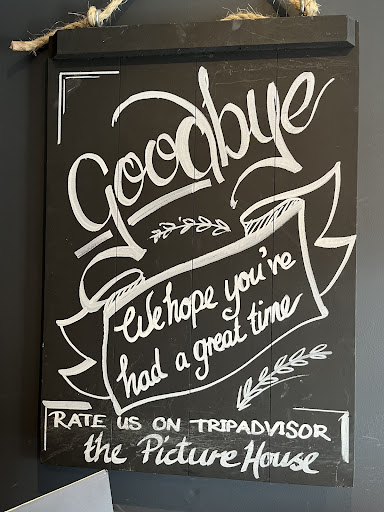 Goodbye
We hope you've
had a great time
RATE US ON TRIPADVISOR
the Picture House